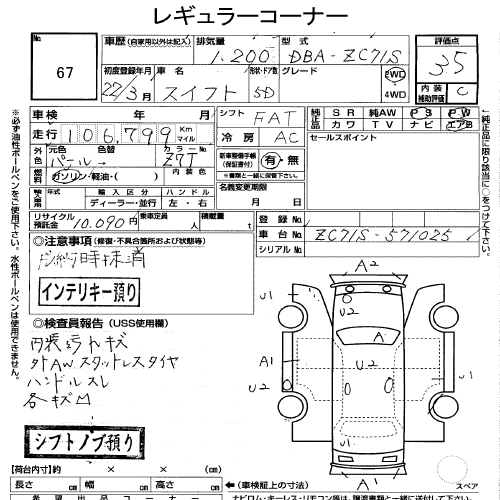 レギュラーコーナー
No. 67
車歴 (自家用以外は記入) 排気量 1.200 型式 DBA-ZC71S 評価点 3.5
初度登録年月 22/3月 車名 スイフト 形状・ドア数 5D グレード 2WD 4WD 内装補助評価 C
車検 年 月 シフト FAT 純正品 SR 純AW PS PW
走行 106,799 Km マイル 冷房 AC 純正品 カワ TV ナビ エアB
外色 元色 パール 色替 カラーNo. Z7T 内装色 新車整備手帳(保証書付) 有・無 セールスポイント
燃料 ガソリン・軽油・( ) ※書類と一緒に保管して下さい。
輸入車 年式 輸入区分 ディーラー・並行 ハンドル 左・右 名義変更期限 月 日
リサイクル預託金 10.090円 乗車定員 人 積載量 t 登録No.
車台No. ZC71S-571025
シリアルNo.
◎注意事項 (修復・不具合箇所および状態等)
インテリキー預り
◎検査員報告 (USS使用欄)
内装汚れキズ
外AWスタットレスタイヤ
ハンドルスレ
各キズ凹
シフトノブ預り
A2
U1 U1
U2
A1 U2 A1
U2
A1
スペア
【荷台内寸】約 × × (cm)
長さ cm 幅 cm 高さ cm ←(車検証上の寸法)
希望出品コーナー
※必ず油性ボールペンをご使用下さい。水性ボールペンは使用できません。
←純正品に限り該当に○をつけて下さい。